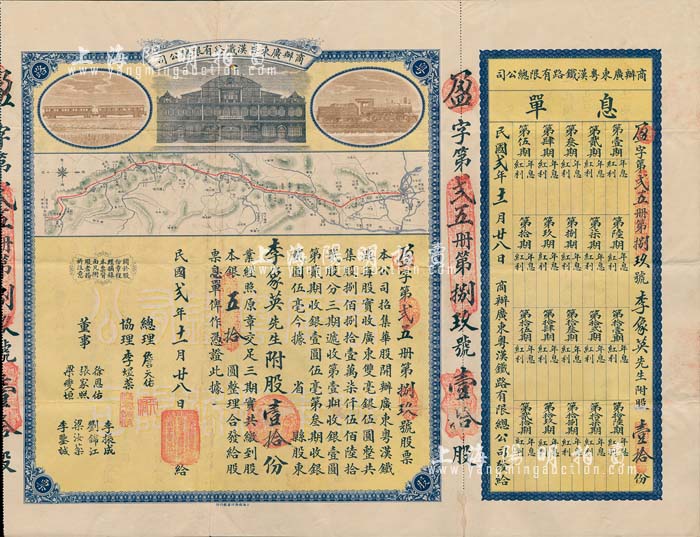 司公總限有份股路鐵漢粵東廣辦商
盈字第弍五册第捌玖號股票
本公司招集華股開辦廣東粵漢鐵
路每股實收廣東雙毫銀伍圓整共
集股捌佰捌拾壹萬柒仟伍佰陸拾
玖股分三期遞收第壹期收銀壹圓
第貳期收銀壹圓伍毫第叁期收銀
貳圓伍毫今據 省 縣股東
李家英先生附股壹拾份
業經照原章交足三期實共繳到股
本銀五拾圓整理合發給股
票息單俾作憑證此據
民國弍年十一月廿八日 給
總理 詹天佑
協理 李煜棻
董事
徐恩佑
張家熙
梁燮垣
李振成
劉錦江
梁汝棻
李鑒誠
盈字第弍五册第捌玖號壹拾股
司公總限有路鐵漢粵東廣辦商
單息
盈字第弍五册第捌玖號李家英先生附股壹拾份
第壹期 年息 紅利
第貳期 年息 紅利
第叁期 年息 紅利
第肆期 年息 紅利
第伍期 年息 紅利
第陸期 年息 紅利
第柒期 年息 紅利
第捌期 年息 紅利
第玖期 年息 紅利
第拾期 年息 紅利
第拾壹期 年息 紅利
第拾貳期 年息 紅利
第拾叁期 年息 紅利
第拾肆期 年息 紅利
第拾伍期 年息 紅利
第拾陸期 年息 紅利
第拾柒期 年息 紅利
第拾捌期 年息 紅利
第拾玖期 年息 紅利
第貳拾期 年息 紅利
民國弍年十一月廿八日 商辦廣東粵漢鐵路有限總公司發給
盈字第弍五册第捌玖號壹拾股
上海陽明拍賣